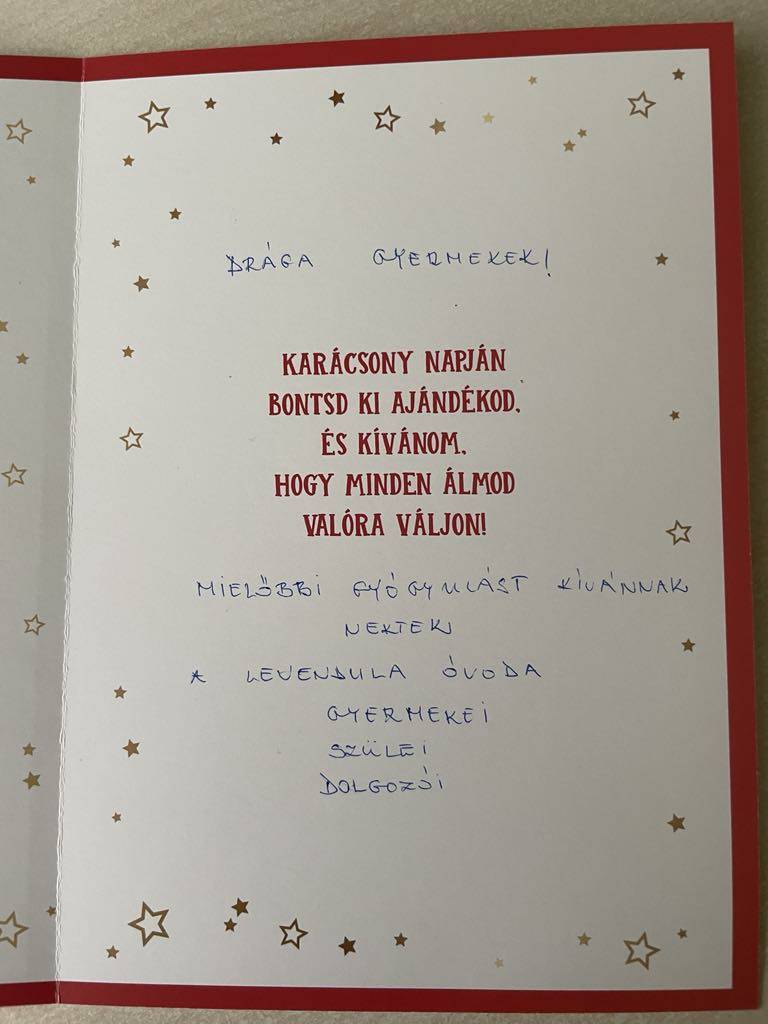 DRÁGA GYERMEKEK!
KARÁCSONY NAPJÁN
BONTSD KI AJÁNDÉKOD,
ÉS KÍVÁNOM,
HOGY MINDEN ÁLMOD
VALÓRA VÁLJON!
MIELŐBBI GYÓGYULÁST KÍVÁNNAK
NEKTEK
A LEVENDULA ÓVODA
GYERMEKEI
SZÜLEI
DOLGOZÓI